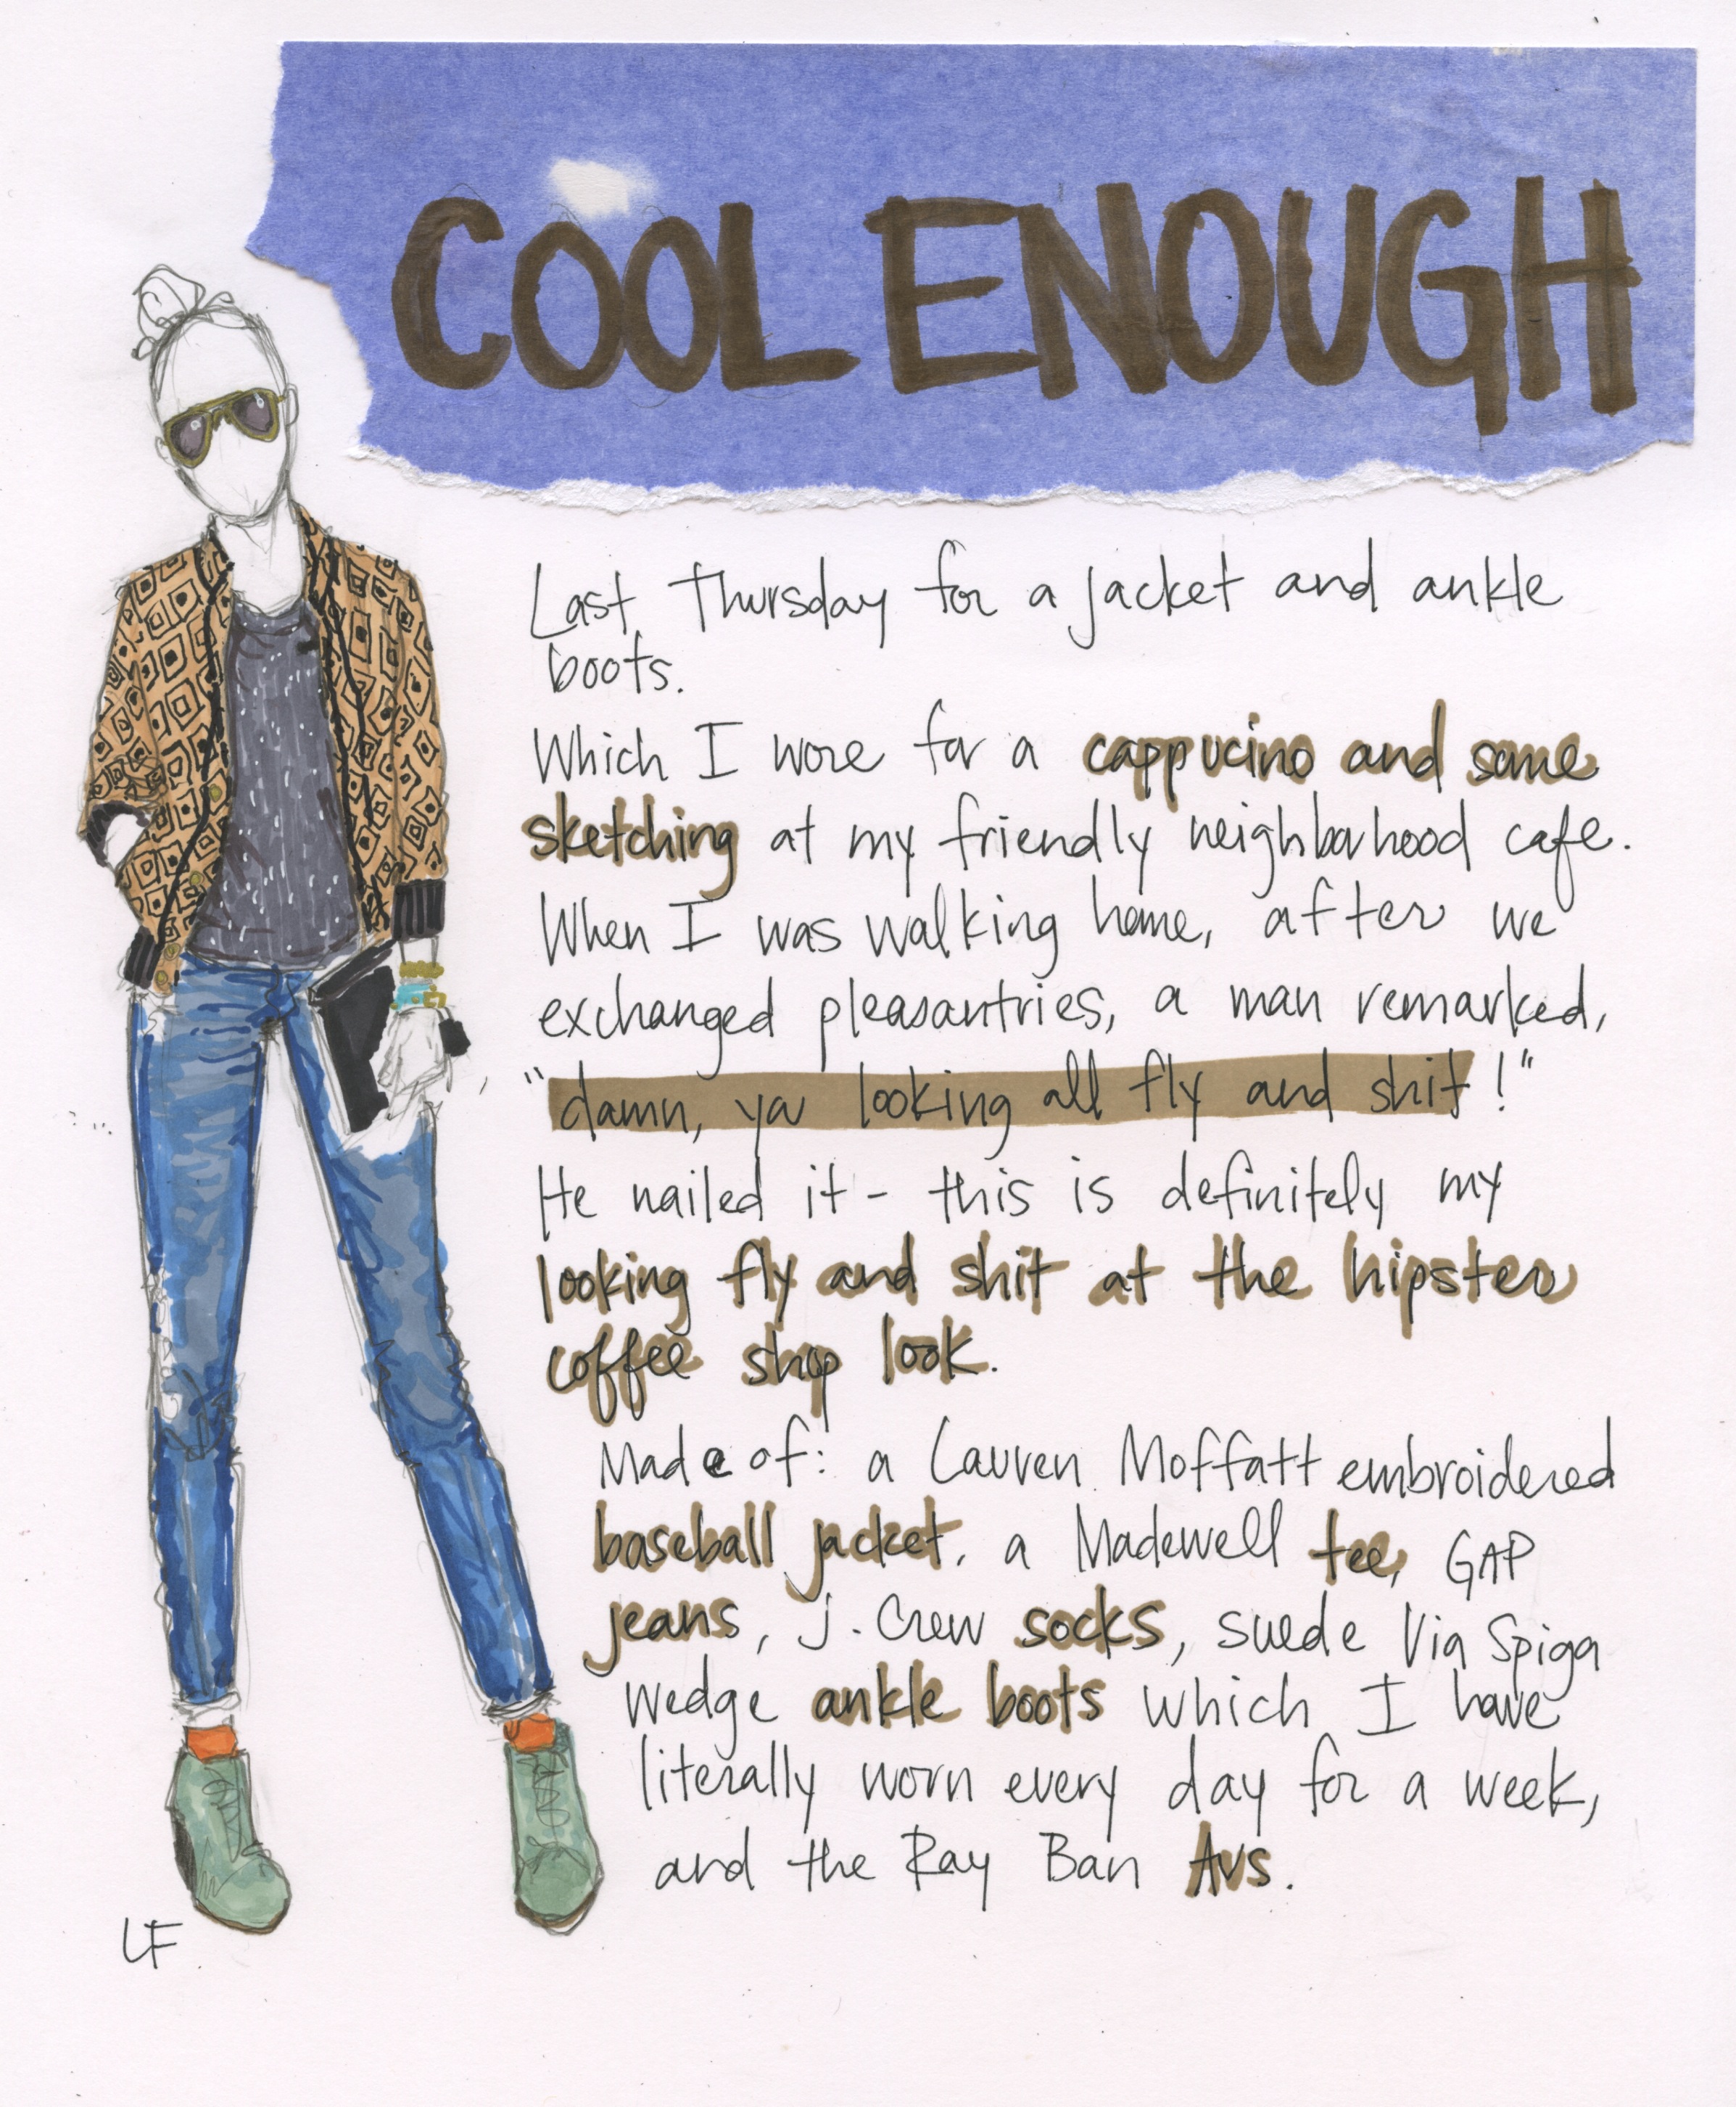 COOL ENOUGH
Last Thursday for a jacket and ankle
boots.
Which I wore for a cappucino and some
sketching at my friendly neighborhood cafe.
When I was walking home, after we
exchanged pleasantries, a man remarked,
"damn, ya looking all fly and shit!"
He nailed it - this is definitely my
looking fly and shit at the hipster
coffee shop look.
Made of: a Lauren Moffatt embroidered
baseball jacket, a Madewell tee, GAP
jeans, J. Crew socks, suede Via Spiga
wedge ankle boots which I have
literally worn every day for a week,
and the Ray Ban Avs.
LF